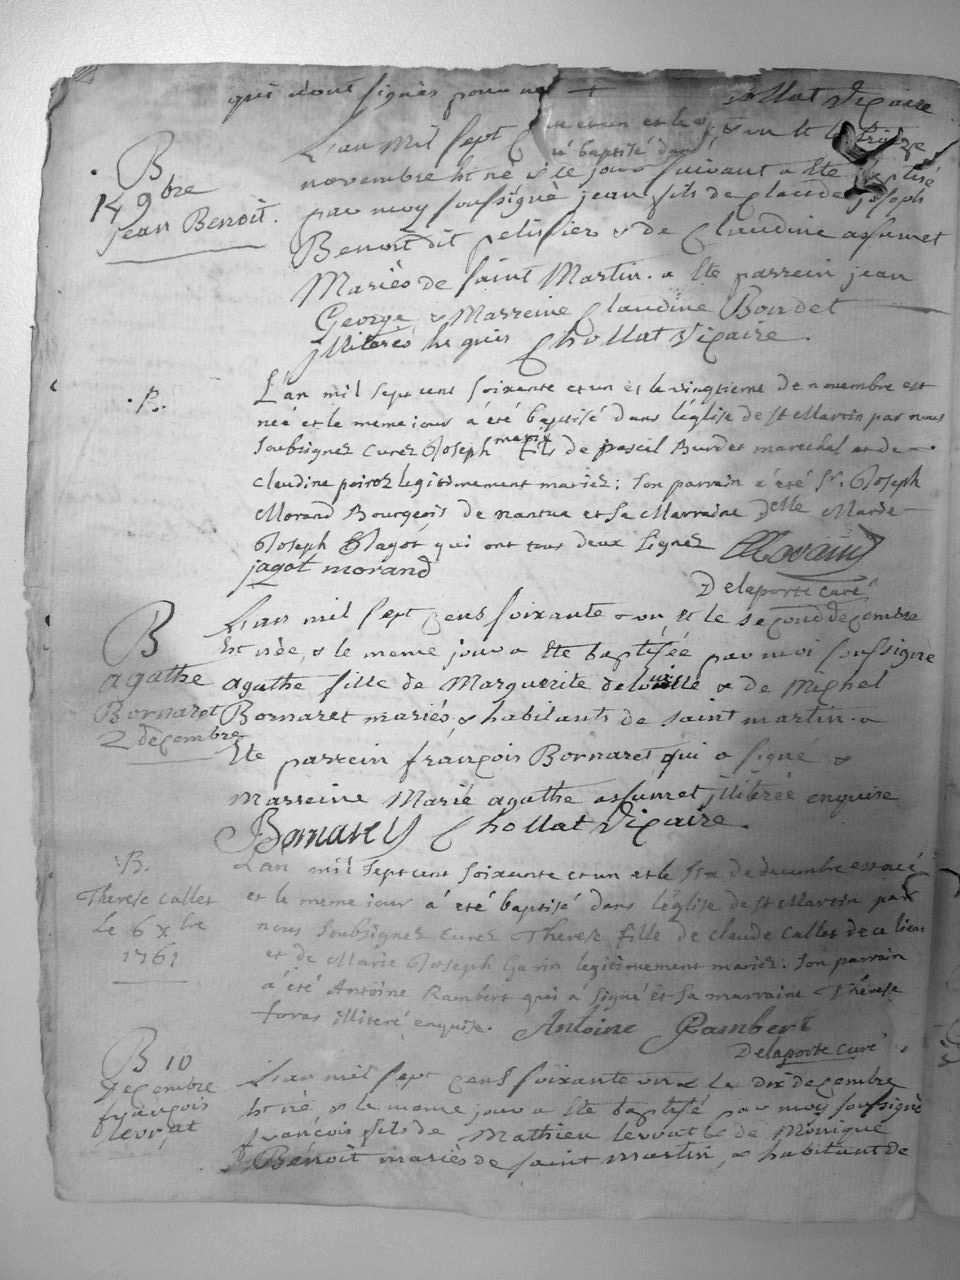 qui dont signés pour
Chollat Vicaire
B
14 9bre
jean Benoit.
L'an mil sept soixante et un et le
novembre Est né & le jour suivant a Ete baptisé
par moy soussigné jean fils de claude joseph
Benoit dit pelissier & de Claudine assumet
Mariés de saint Martin. a Ete parrein jean
George & Marreine Claudine Bondet
jlliterés Enquis Chollat Vicaire.
B.
L'an mil sept cent soixante et un et le vingtieme de novembre est
né et le meme iour á été baptisé dans l'église de st Martin par nous
soubsignez curez Joseph marix fils de pascal Burdet marechal et de
claudine poiroz legitimement mariez: son parrain á été sr. Joseph
Morand Bourgeois de nantua et sa Marraine delle Marie
Joseph Jagot qui ont tous deux signez Morand
jagot morand
Delaporte curé
B
agathe
Bornaret
2 decembre
L'an mil sept cens soixante & un Et le second decembre
Est née, & le meme jour a Ete baptisée par moi soussigné
agathe fille de Marguerite & de Michel
Bornaret mariés & habitants de saint martin. a
Ete parrein françois Bornaret qui a signé &
marreine Marie agathe assumet jlliterée enquise
Bornaret Chollat Vicaire.
B.
Therese Callet
le 6 xbre
1761
L'an mil sept cent soixante et un et le six de decembre est née
et le meme iour á été baptisé dans l'église de st Martin par
nous soubsignez curez Therese fille de claude Callet de ce lieu
et de Marie Joseph Garin legitimement mariez: son parrain
á été Antoine Rambert qui á signé et sa marraine Thérese
foras illiteré enquise. Antoine Rambert
Delaporte curé
B 10
decembre
françois
levrat
L'an mil sept cens soixante un & le dix decembre
Est né, & le meme jour a Ete baptisé par moy soussigné
françois fils de Mathieu levrat & de Monique
Benoit mariés de saint martin, & habitant de